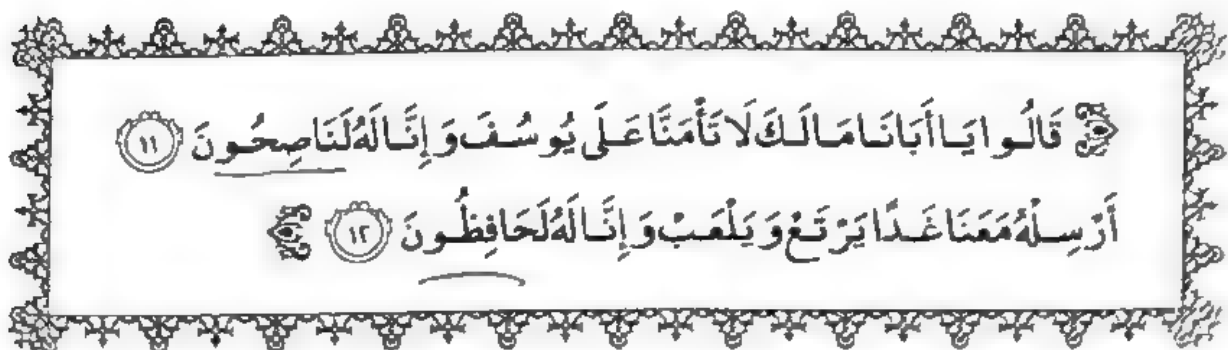 ﴿ قَالُوا يَا أَبَانَا مَا لَكَ لَا تَأْمَنَّا عَلَى يُوسُفَ وَإِنَّا لَهُ لَنَاصِحُونَ ١١
أَرْسِلْهُ مَعَنَا غَدًا يَرْتَعْ وَيَلْعَبْ وَإِنَّا لَهُ لَحَافِظُونَ ١٢ ﴾